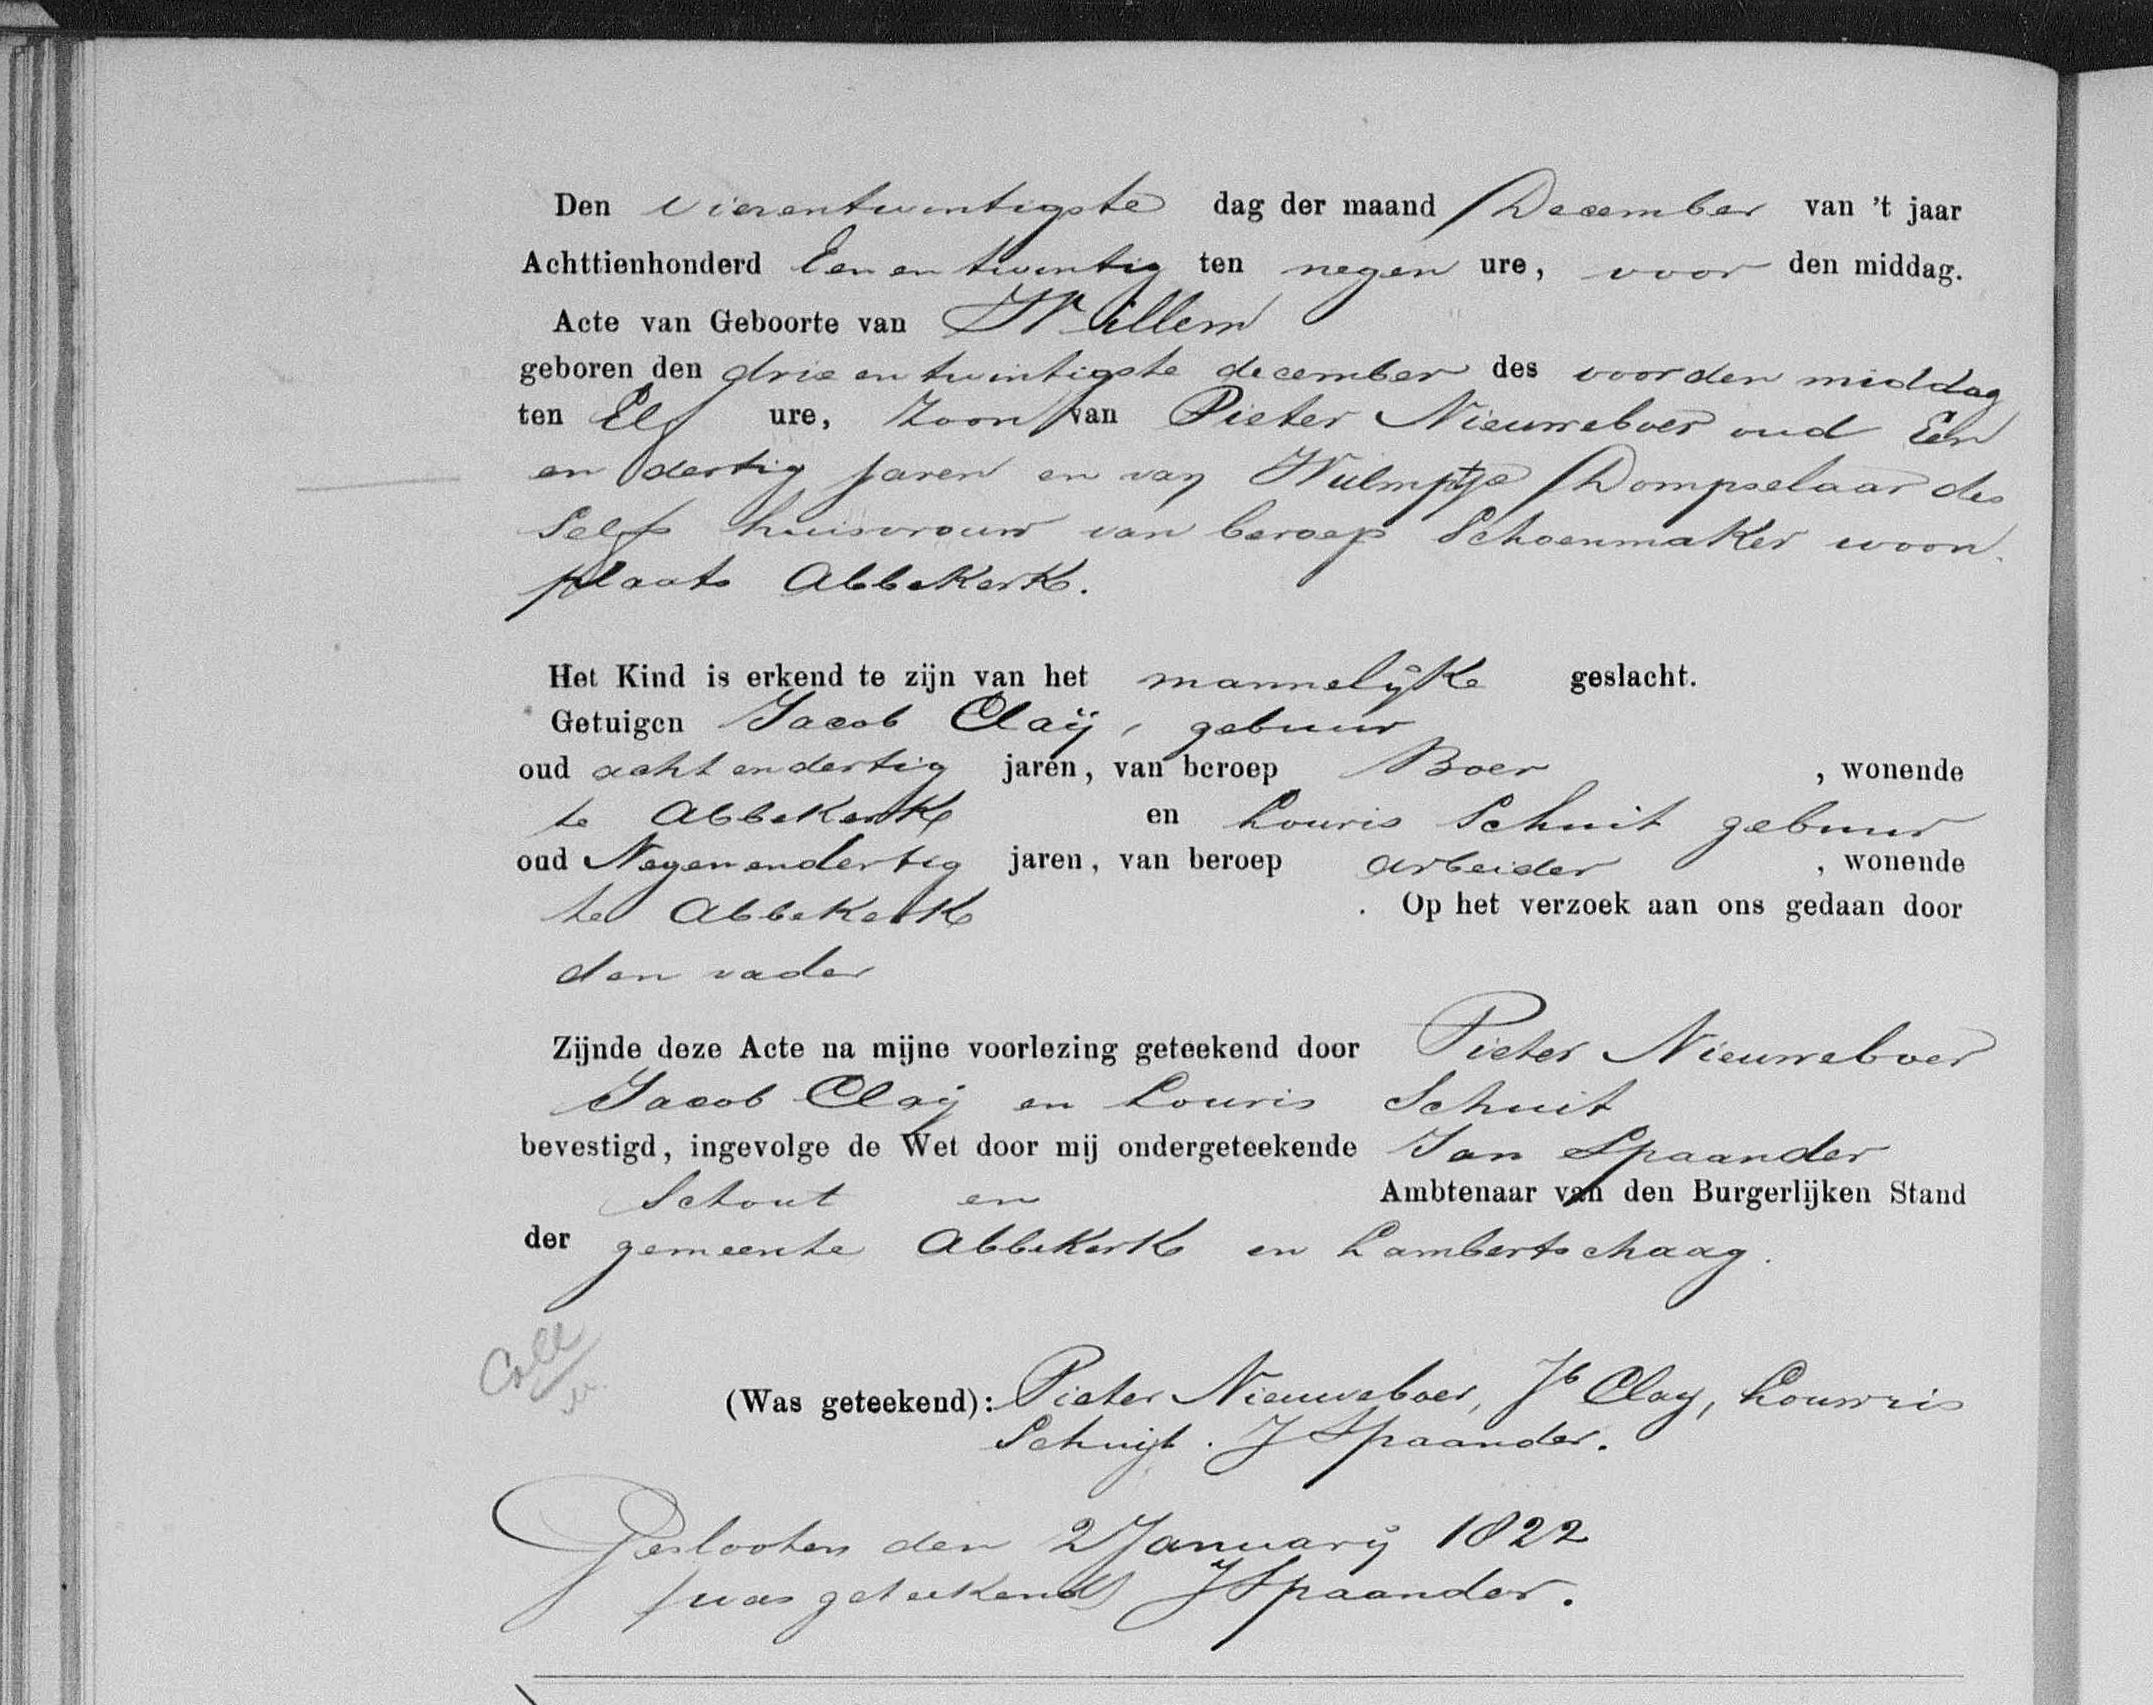 Den vierentwintigste dag der maand December van 't jaar
Achttienhonderd Een en twintig ten negen ure, voor den middag.
Acte van Geboorte van Willem
geboren den drie en twintigste december des voor den middag
ten Elf ure, Zoon van Pieter Nieuweboer oud Een
en dertig jaren en van Wulmptje Dompselaar des
selfs huisvrouw van beroep Schoenmaker woon
plaats Abbekerk.
Het Kind is erkend te zijn van het mannelijke geslacht.
Getuigen Jacob Claÿ, gebuur
oud acht en dertig jaren, van beroep Boer , wonende
te Abbekerk en Louris Schuit gebuur
oud Negenendertig jaren, van beroep arbeider , wonende
te Abbekerk . Op het verzoek aan ons gedaan door
den vader
Zijnde deze Acte na mijne voorlezing geteekend door Pieter Nieuweboer
Jacob Claÿ en Louris Schuit
bevestigd, ingevolge de Wet door mij ondergeteekende Jan Spaander
Schout en Ambtenaar van den Burgerlijken Stand
der gemeente Abbekerk en Lambertschaag.
Coll
(Was geteekend): Pieter Nieuweboer, Jb Clay, Louwris
Schuijt. J Spaander.
Geslooten den 2 Januarÿ 1822
(was geteekend) J Spaander.